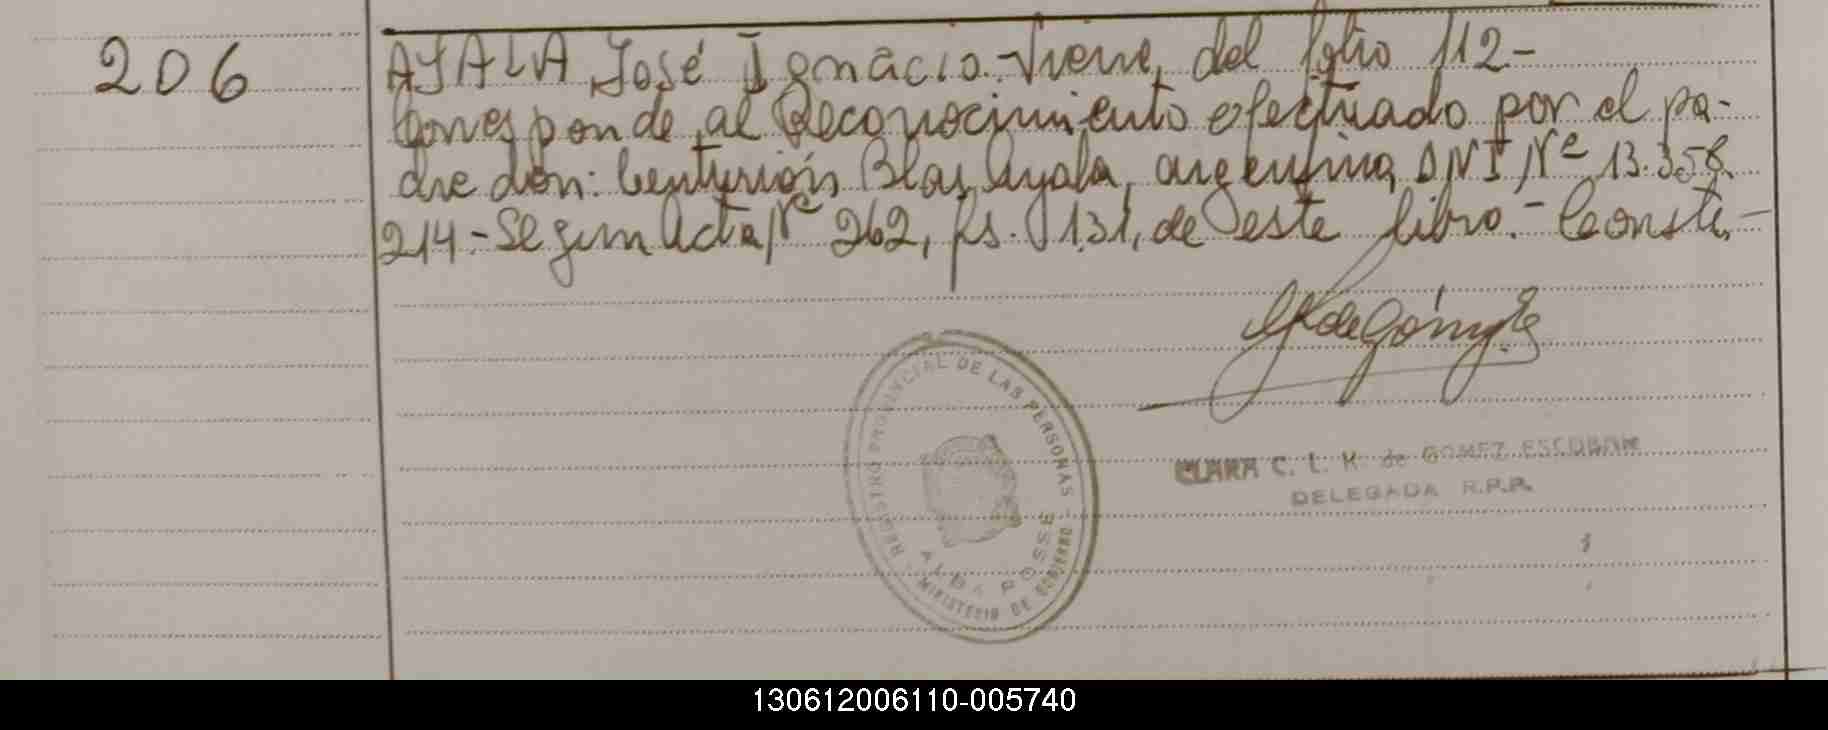 206
AYALA José Ignacio.-Viene, del folio 112-
Corresponde, al Reconocimiento efectuado por el pa-
dre don: Centurión Blas Ayala, argentino, DNI Nº 13.358.
214.-Segun Acta Nº 262, fs. 131, de este libro.-Conste.-
REGISTRO PROVINCIAL DE LAS PERSONAS
ALBA POSSE
MINISTERIO DE GOBIERNO
CLARA C. L. K. de GOMEZ ESCOBAR
DELEGADA R.P.P.
130612006110-005740